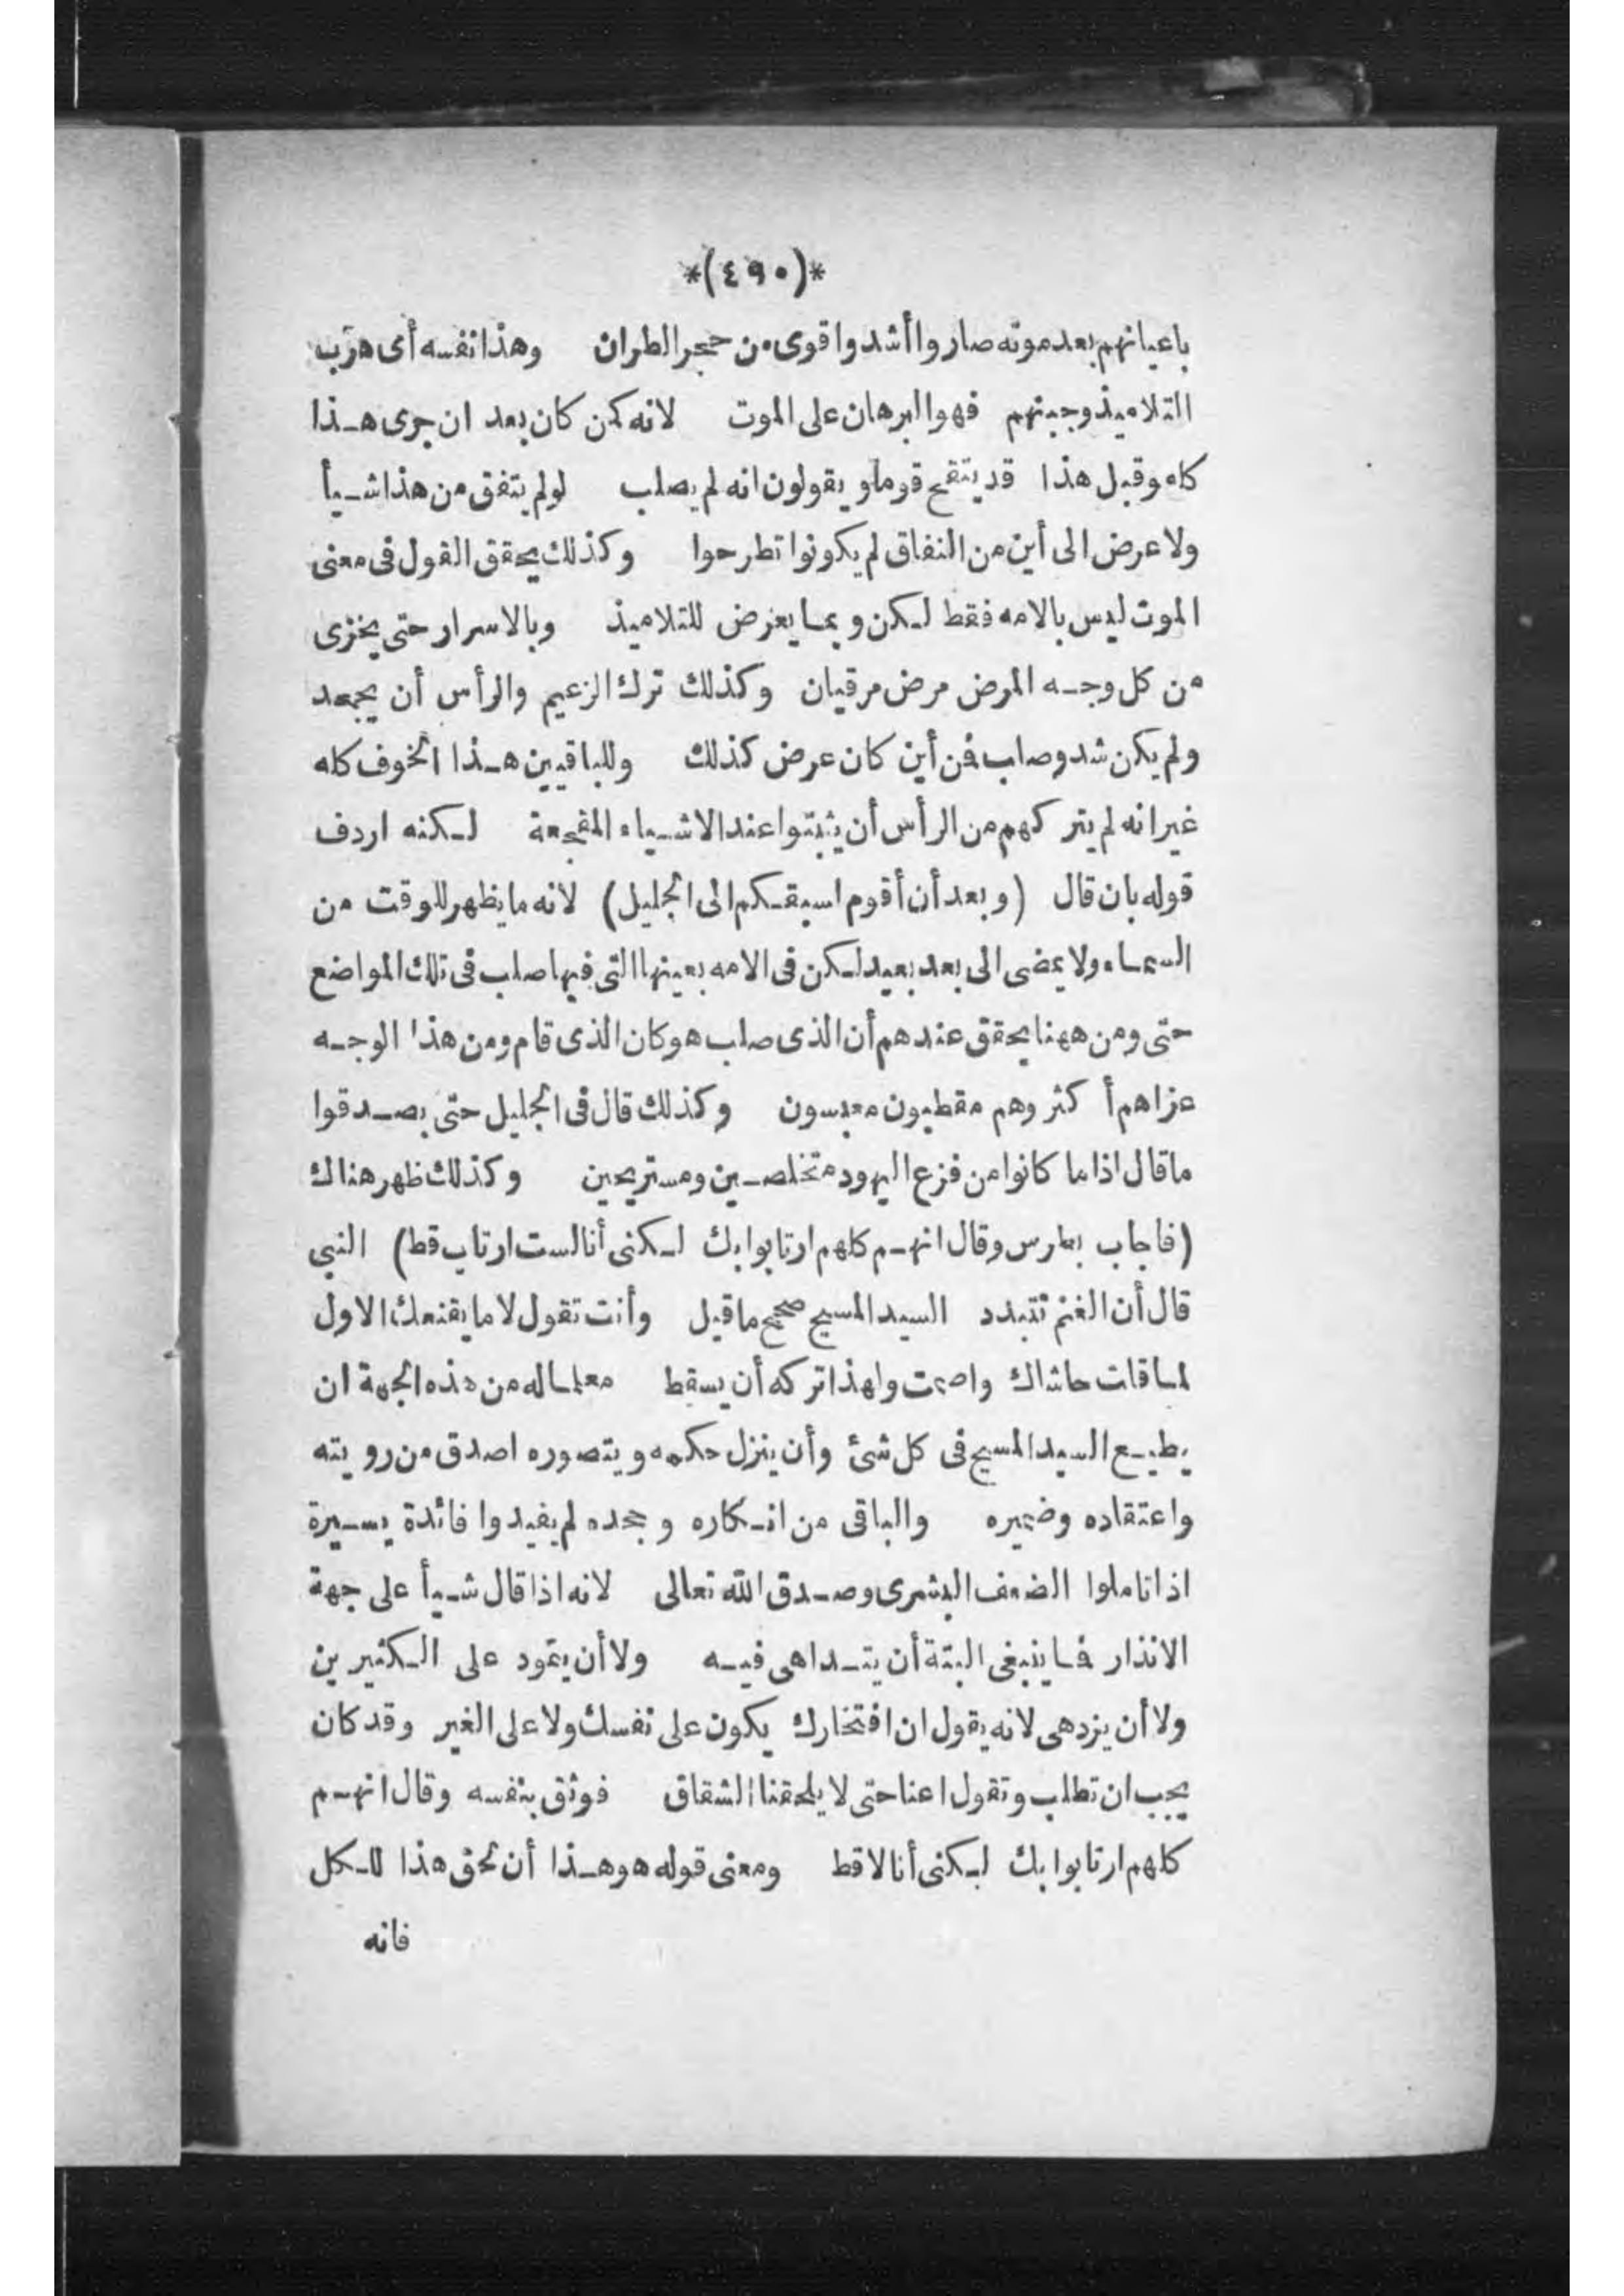 *(٤٩٠)*
باعيانهم بعد موته صاروا أشد واقوى من حجر الطران وهذا نفسه أى هرب
التلاميذ وجبنهم فهو البرهان على الموت لانه لمن كان بعد ان جرى هذا
كله وقبل هذا قد يتقح قوما ويقولون انه لم يصلب لو لم يتفق من هذا شيأ
ولا عرض الى أين من النفاق لم يكونوا تطرحوا وكذلك يحقق القول فى معنى
الموت ليس بالامه فقط لكن وبما يعرض للتلاميذ وبالاسرار حتى يخزى
من كل وجه المرض مرض مرقيان وكذلك ترك الزعيم والرأس أن يجحد
ولم يكن شد وصلب فن أين كان عرض كذلك وللباقيين هذا الخوف كله
غير انه لم يتركهم من الرأس أن يثبتوا عند الاشياء المفجعة لكنه اردف
قوله بان قال (وبعد أن أقوم اسبقكم الى الجليل) لانه ما يظهر للوقت من
السماء ولا يمضى الى بعد بعيد لكن فى الامه بعينها التى فيها صلب فى تلك المواضع
حتى ومن ههنا يحقق عندهم أن الذى صلب هو كان الذى قام ومن هذا الوجه
عزاهم أكثر وهم مقطبون معبسون وكذلك قال فى الجليل حتى يصدقوا
ما قال اذا ما كانوا من فزع اليهود متخلصين ومستريحين وكذلك ظهر هناك
(فاجاب بطرس وقال انهم كلهم ارتابوا بك لكنى أنا لست ارتاب قط) النبي
قال أن الغنم تتبدد السيد المسيح صحح ما قيل وأنت تقول لا ما يقنعك الاول
لما قلت حاشاك واصمت ولهذا تركه أن يسقط معلما له من هذه الجهة ان
يطيع السيد المسيح فى كل شئ وأن ينزل حكمه ويتصوره اصدق من رويته
واعتقاده وضميره والباقى من انكاره وجحده لم يفيدوا فائدة يسيرة
اذا تاملوا الضعف البشرى وصدق الله تعالى لانه اذا قال شيأ على جهة
الانذار فما ينبغى البتة أن يتداهى فيه ولا أن يتمود على الكثيرين
ولا أن يزدهى لانه يقول ان افتخارك يكون على نفسك ولا على الغير وقد كان
يجب ان تطلب وتقول اعنا حتى لا يلحقنا الشقاق فوثق بنفسه وقال انهم
كلهم ارتابوا بك لكنى أنا لا قط ومعنى قوله هو هذا أن لحق هذا للكل
فانه